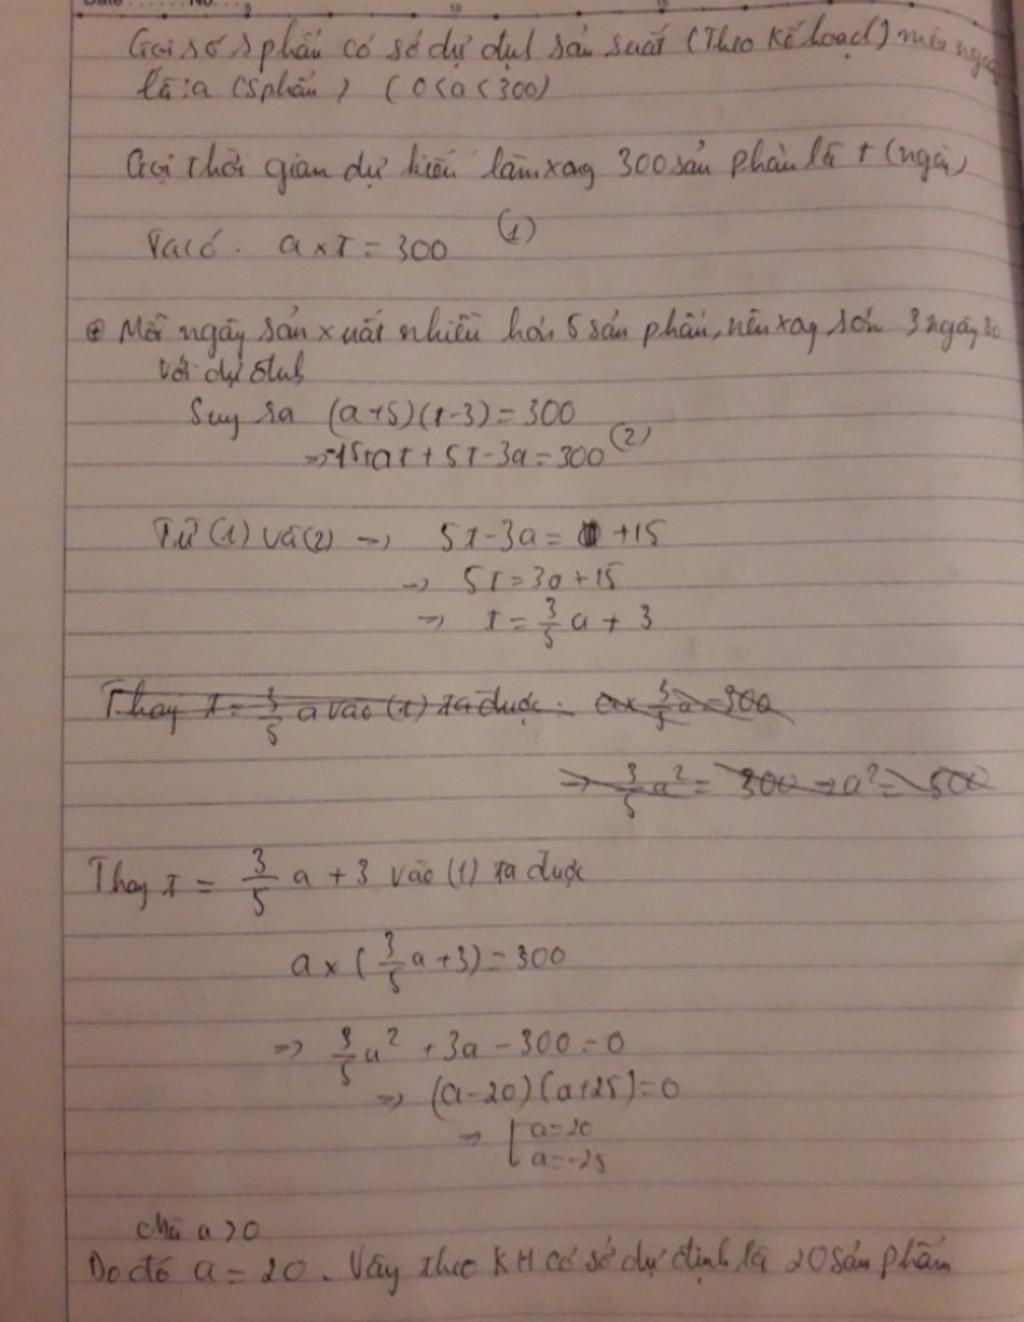 Gọi số sphẩm cơ sở dự định sản suất (Theo kế hoạch) mỗi ngày
là: a (sphẩm) (0<a<300)
Gọi thời gian dự kiến làm xong 300 sản phẩm là t (ngày)
Ta có: a x t = 300 (1)
Mỗi ngày sản xuất nhiều hơn 5 sản phẩm, nên xong sớm 3 ngày so
với dự định
Suy ra (a+5)(t-3) = 300
=> -15+at+5t-3a=300 (2)
Từ (1) và (2) => 5t-3a= +15
=> 5t=3a+15
=> t = 3/5 a + 3
Thay t = 3/5 a vào (1) ta được: a x 3/5 a = 300
=> 3/5 a² = 300 => a² = 500
Thay t = 3/5 a + 3 vào (1) ta được
a x (3/5 a + 3) = 300
=> 3/5 a² + 3a - 300 = 0
=> (a-20)(a+25)=0
=> [a=20
a=-25
Mà a>0
Do đó a = 20. Vậy theo KH cơ sở dự định là 20 sản phẩm